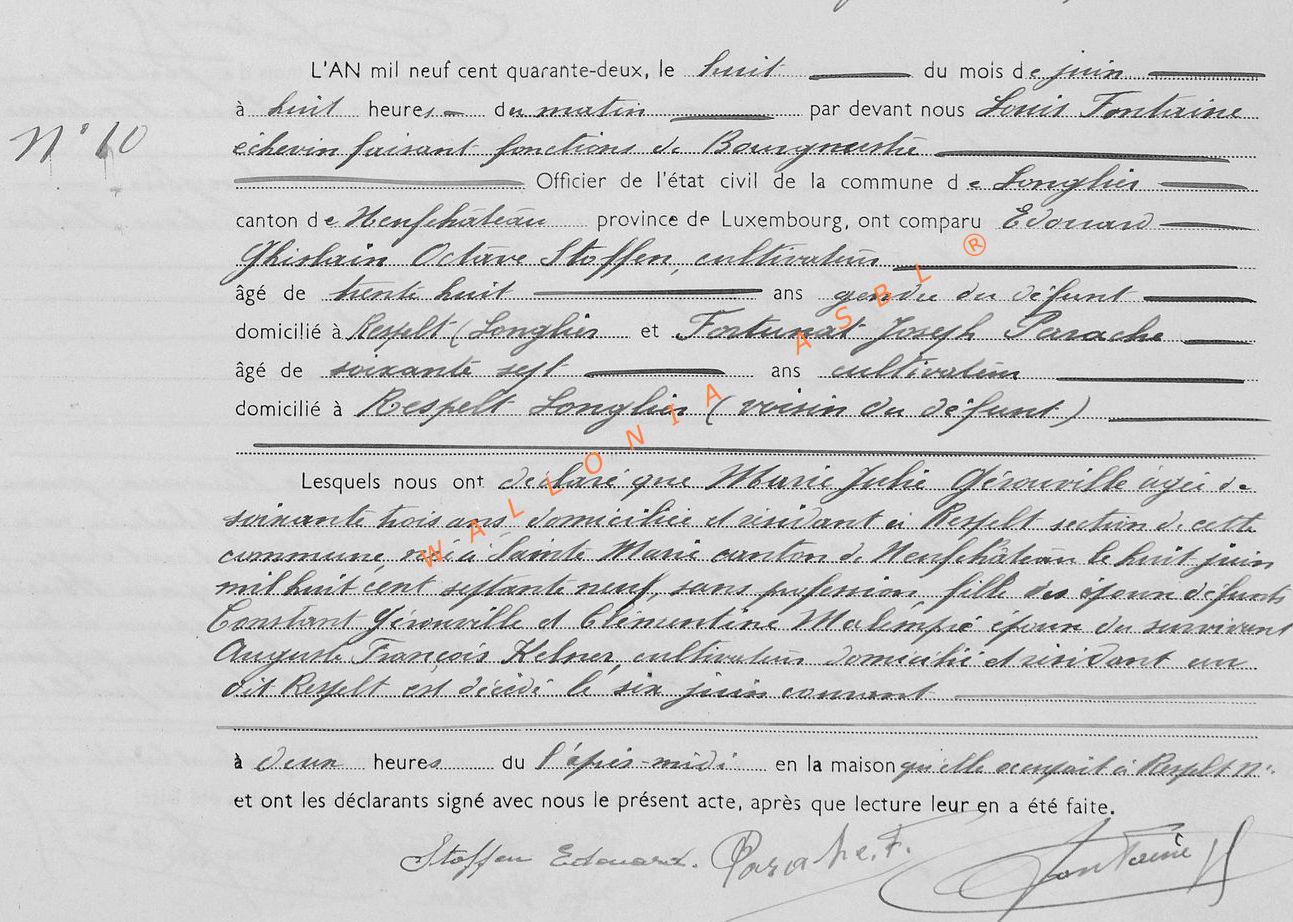 L'AN mil neuf cent quarante-deux, le huit du mois de juin
à huit heures du matin par devant nous Louis Fontaine
N° 10
échevin faisant fonctions de Bourgmestre
Officier de l'état civil de la commune de Longlier
canton de Neufchâteau province de Luxembourg, ont comparu Edouard
Ghislain Octave Stoffen, cultivateur
âgé de trente huit ans gendre du défunt
domicilié à Respelt (Longlier et Fortunat Joseph Parache
âgé de soixante sept ans cultivateur
domicilié à Respelt Longlier (voisin du défunt)
Lesquels nous ont déclaré que Marie Julie Gérouville âgée de
soixante trois ans domiciliée et résidant à Respelt section de cette
commune, née à Sainte Marie canton de Neufchâteau le huit juin
mil huit cent septante neuf, sans profession fille des époux défunts
Constant Gérouville et Clémentine Malempré époux du survivant
Auguste François Kelner, cultivateur domicilié et résidant au
dit Respelt est décédé le six juin courant
à deux heures du l'après-midi en la maison qu'elle occupait à Respelt N°
et ont les déclarants signé avec nous le présent acte, après que lecture leur en a été faite.
Stoffen Edouard. Parache. F. Fontaine
WALLONIA ASBL ®